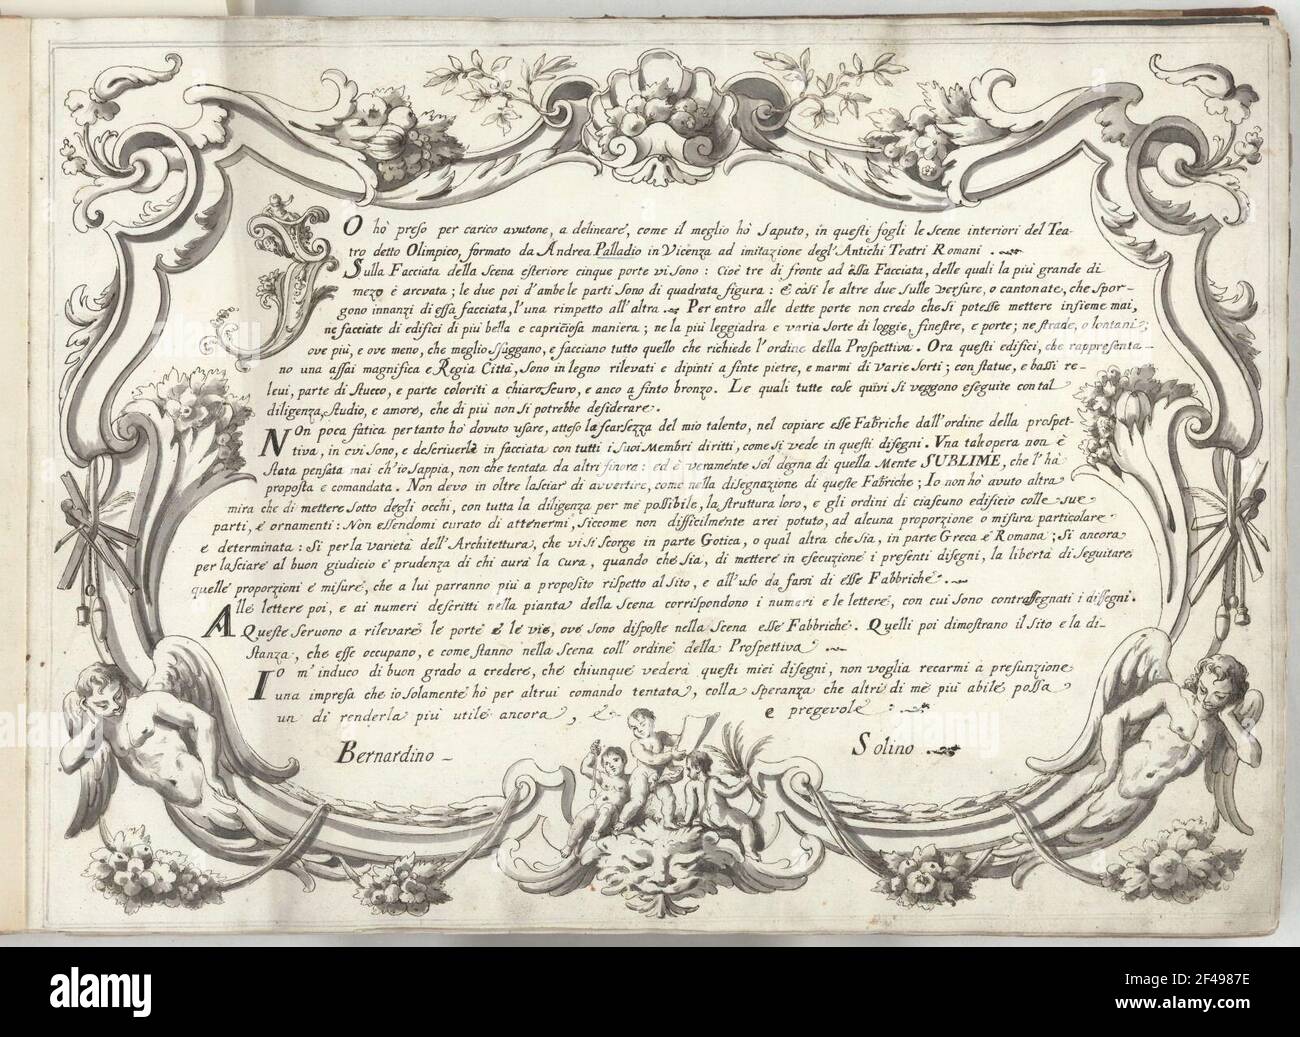 IO hò preso per carico avutone, a delineare, come il meglio hò saputo, in questi fogli le scene interiori del Tea-
tro detto Olimpico, formato da Andrea Palladio in Vicenza ad imitazione degl'Antichi Teatri Romani.
Sulla Facciata della Scena esteriore cinque porte vi sono: Cioè tre di fronte ad essa Facciata, delle quali la più grande di
mezo è arcvata; le due poi d'ambe le parti sono di quadrata figura: e così le altre due sulle versure, o cantonate, che spor-
gono innanzi di essa facciata, l'una rimpetto all'altra. Per entro alle dette porte non credo che si potesse mettere insieme mai,
ne facciate di edifici di più bella e capricciosa maniera; ne la più leggiadra e varia sorte di loggie, finestre, e porte; ne strade, o lontani;
ove più, e ove meno, che meglio sfuggano, e facciano tutto quello che richiede l'ordine della Prospettiva. Ora questi edifici, che rappresenta-
no una assai magnifica e Regia Città, sono in legno rilevati e dipinti a finte pietre, e marmi di varie sorti; con statue, e bassi re-
leui, parte di stucco, e parte coloriti a chiaroscuro, e anco a finto bronzo. Le quali tutte cose quivi si veggono eseguite con tal
diligenza, studio, e amore, che di più non si potrebbe desiderare.
NOn poca fatica per tanto hò dovuto usare, atteso la scarsezza del mio talento, nel copiare esse Fabriche dall'ordine della prospet-
tiva, in cvi sono, e descriverle in facciata con tutti i suoi Membri diritti, come si vede in questi disegni. Vna tal opera non è
stata pensata mai ch'io sappia, non che tentata da altri finora: ed è veramente sol degna di quella Mente SUBLIME, che l'hà
proposta e comandata. Non devo in oltre lasciar di avvertire, come nella disegnazione di queste Fabriche; Io non hò avuto altra
mira che di mettere sotto degli occhi, con tutta la diligenza per me possibile, la struttura loro, e gli ordini di ciascuno edificio colle sue
parti, e ornamenti: Non essendomi curato di attenermi, siccome non difficilmente arei potuto, ad alcuna proporzione o misura particolare
e determinata: Sì per la varietà dell'Architettura, che vi si scorge in parte Gotica, o qual altra che sia, in parte Greca e Romana; sì ancora
per lasciare al buon giudicio e prudenza di chi aurà la cura, quando che sia, di mettere in esecuzione i presenti disegni, la libertà di seguitare
quelle proporzioni e misure, che a lui parranno più a proposito rispetto al sito, e all'uso da farsi di esse Fabbriche.
Alle lettere poi, e ai numeri descritti nella pianta della Scena corrispondono i numeri e le lettere, con cui sono contrassegnati i disegni.
Queste seruono a rilevare le porte e le vie, ove sono disposte nella Scena esse Fabbriche. Quelli poi dimostrano il sito e la di-
stanza, che esse occupano, e come stanno nella Scena coll'ordine della Prospettiva
Io m'induco di buon grado a credere, che chiunque vederà questi miei disegni, non voglia recarmi à presunzione
una impresa che io solamente hò per altrui comando tentata, colla speranza che altri di mè più abile possa
un dì renderla più utile ancora, e pregevole.
Bernardino Solino
alamy
alamy
Image ID: 2F4987E
www.alamy.com